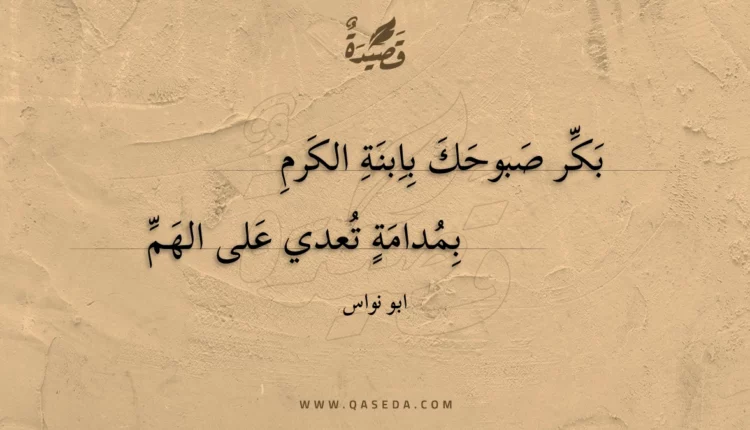 قَصِيدَةٌ
بَكِّر صَبوحَكَ بِاِبنَةِ الكَرمِ
بِمُدامَةٍ تُعدي عَلى الهَمِّ
ابو نواس
WWW.QASEDA.COM